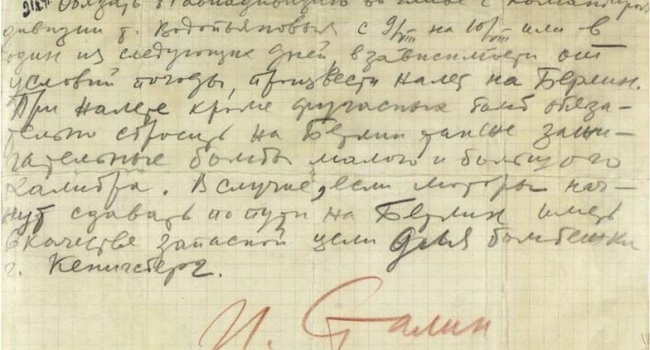 Обязать 81 авиадивизию во главе с командиром
дивизии т. Водопьяновым с 9/VIII на 10/VIII или в
один из следующих дней, в зависимости от
условий погоды, произвести налет на Берлин.
При налете кроме фугасных бомб обяза-
тельно сбросить на Берлин также зажи-
гательные бомбы малого и большого
калибра. В случае, если моторы нач-
нут сдавать по пути на Берлин иметь
в качестве запасной цели для бомбежки
г. Кенигсберг.
И. Сталин